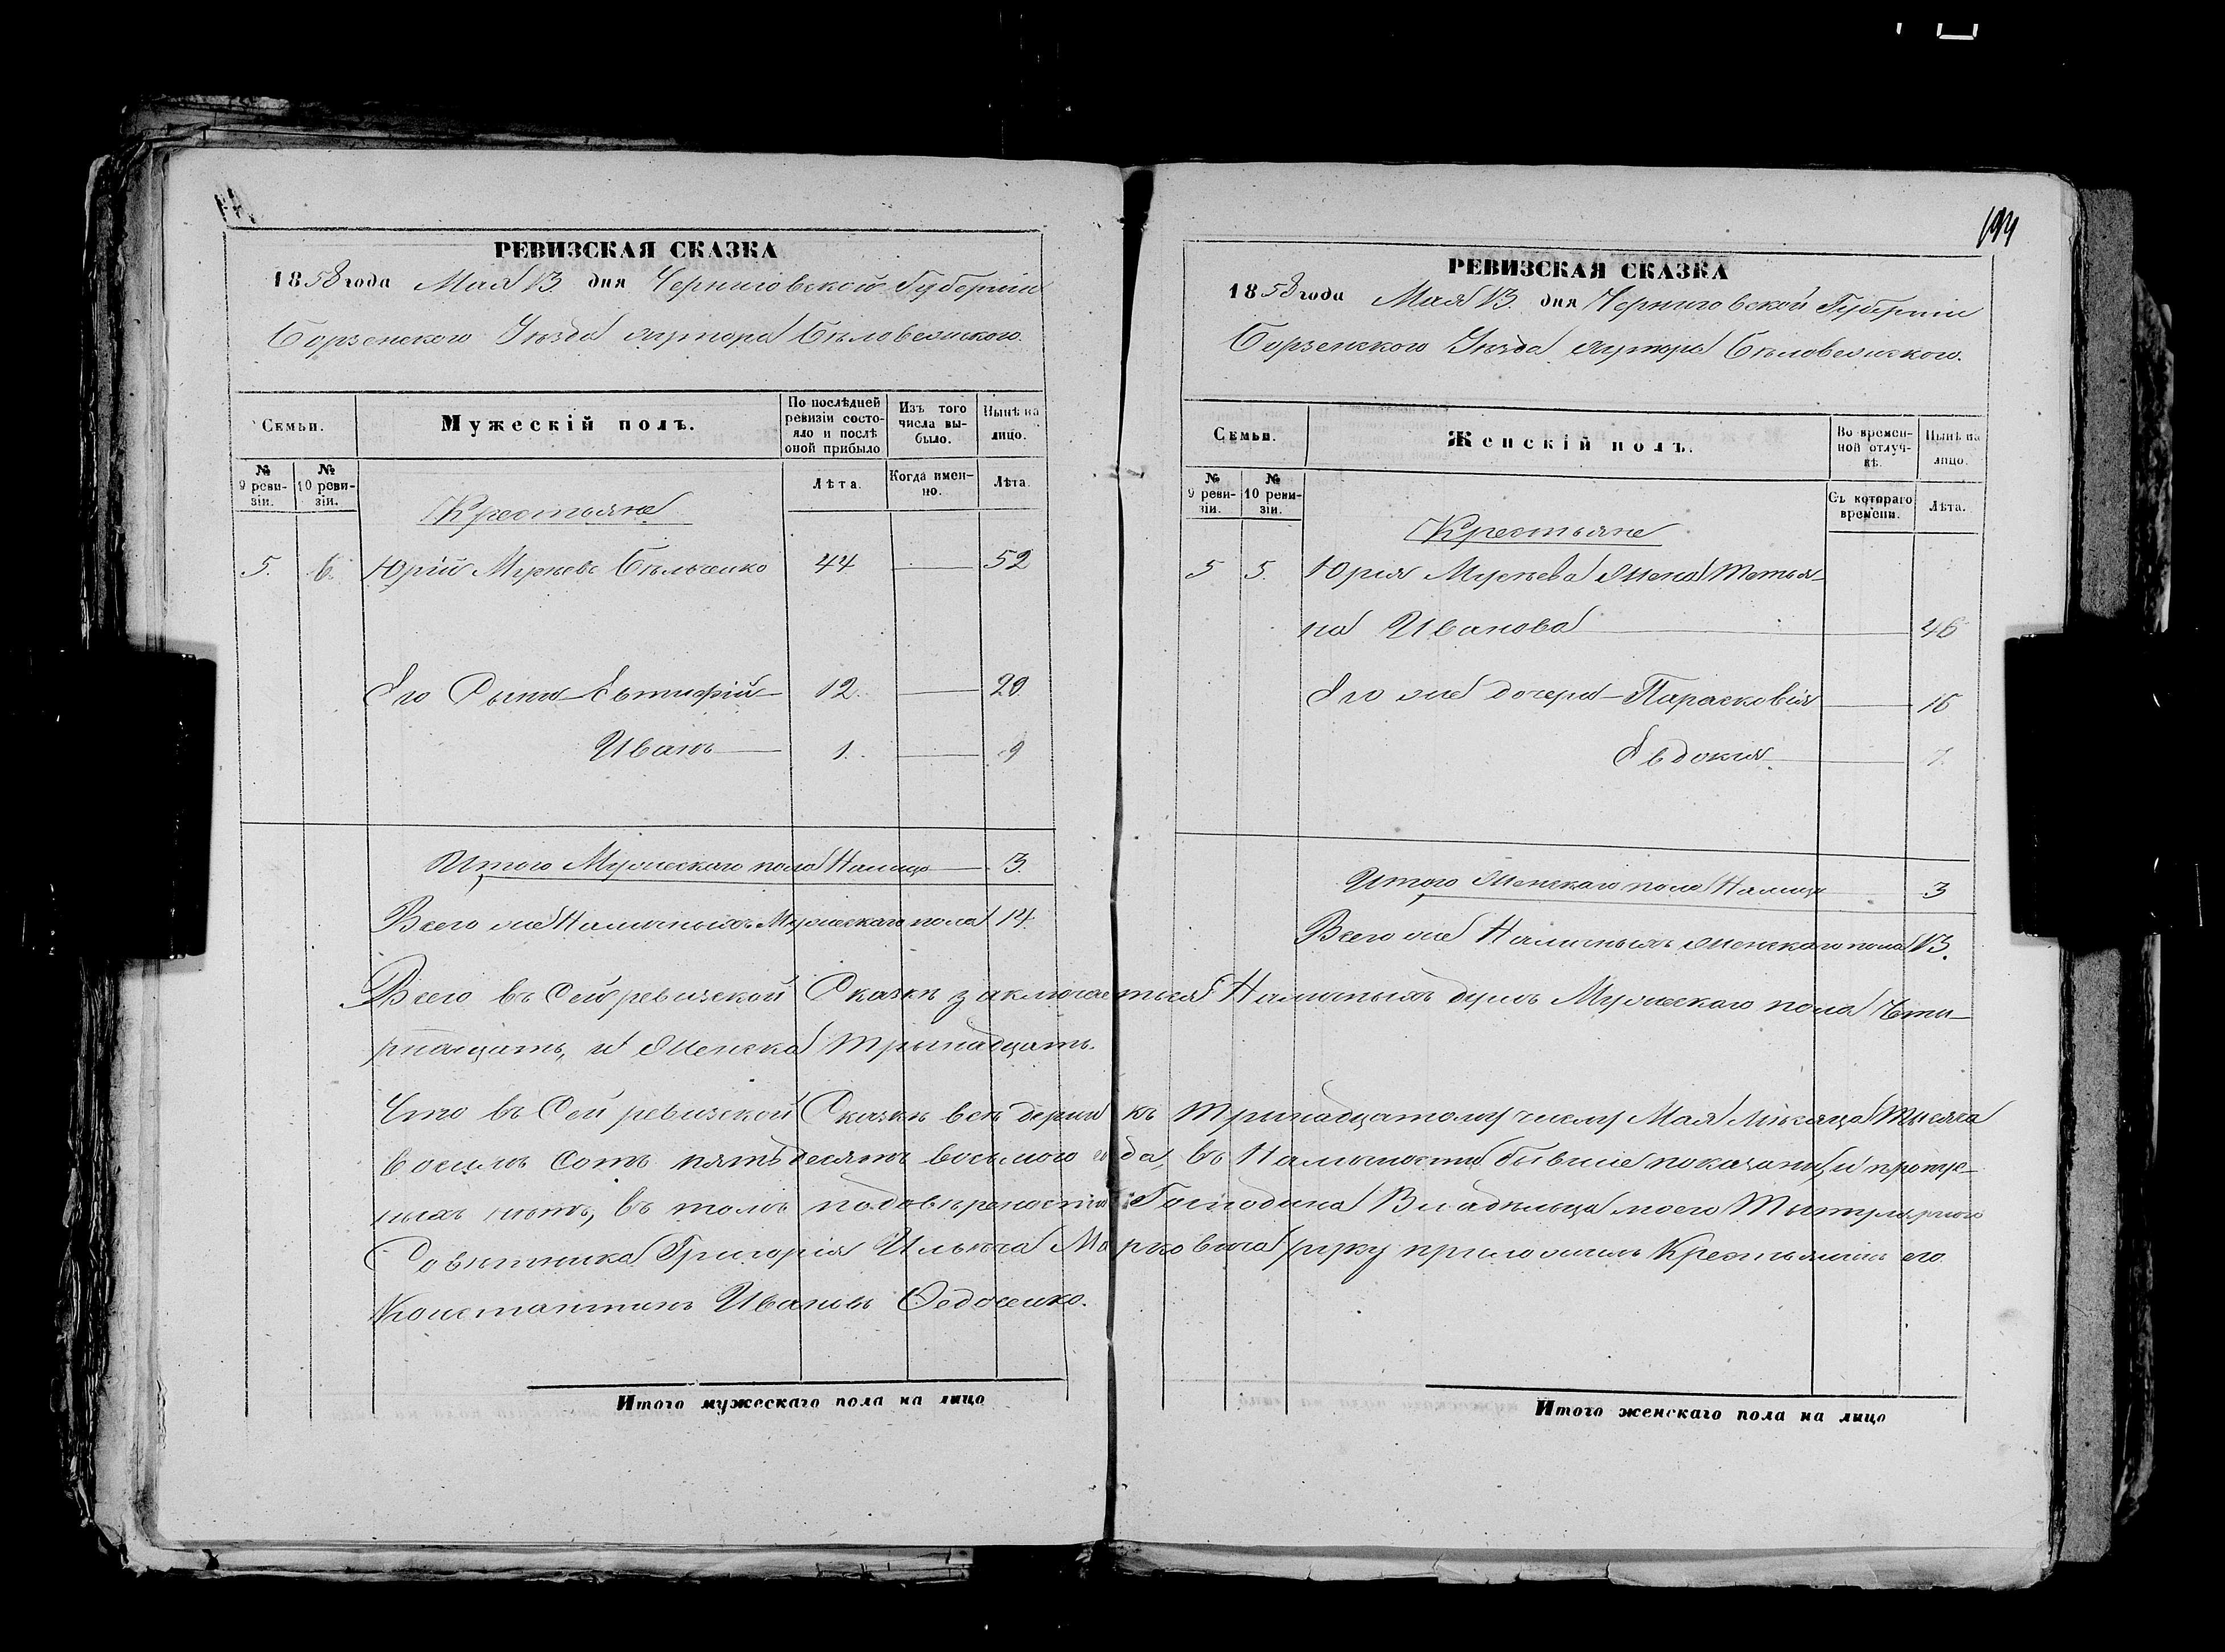 РЕВИЗСКАЯ СКАЗКА
1858 года Мая 13 дня Черниговской Губерніи
Борзенского Уѣзда хутора Бѣловежского.
Семьи.
Мужескій полъ.
По послѣдней ревизіи состояло и послѣ оной прибыло
Изъ того числа выбыло.
Нынѣ на лицо.
№ 9 ревизіи.
№ 10 ревизіи.
Лѣта.
Когда именно.
Лѣта.
Крестьяне
5. 6. Юрій Бѣльченко 44 52
Его Сыны Евтифій 12. 20.
Иванъ 1. 9
Итого Мужескаго пола Налицо 3.
Всего же Наличныхъ Мужескаго пола 14.
РЕВИЗСКАЯ СКАЗКА
1858 года Мая 13. дня Черниговской Губерніи
Борзенского Уѣзда хутора Бѣловежского.
Семьи.
Женскій полъ.
Во временной отлучкѣ.
Нынѣ на лицо.
№ 9 ревизіи.
№ 10 ревизіи.
Съ котораго времени.
Лѣта.
Крестьяне
5 5. Юрія жена Тетья-
на Иванова 46
Его же дочера Парасковія 16
Евдокия 7.
Итого Женскаго пола Налицо 3
Всего же Наличныхъ женскаго пола 13.
Всего въ Сей ревизской Сказкѣ заключается Наличныхъ душъ Мужескаго пола Четы-
рнацать, и Женска Трынадцать.
Что въ Сей ревизской Сказкѣ всѣ души къ Тринадцатому числу Мая Мѣсяца Тысяча
восимъ Сотъ пятьдесятъ восьмого года, въ Наличности бывшие показаны, и пропус-
ныхъ нѣтъ, въ томъ подовѣрености Господина Владѣльца моего Тытулярного
Совѣтника Григорія Ильича Марковича руку приложилъ Крестьянинъ его
Константинъ Ивановъ Федосенко.
Итого мужескаго пола на лицо
Итого женскаго пола на лицо